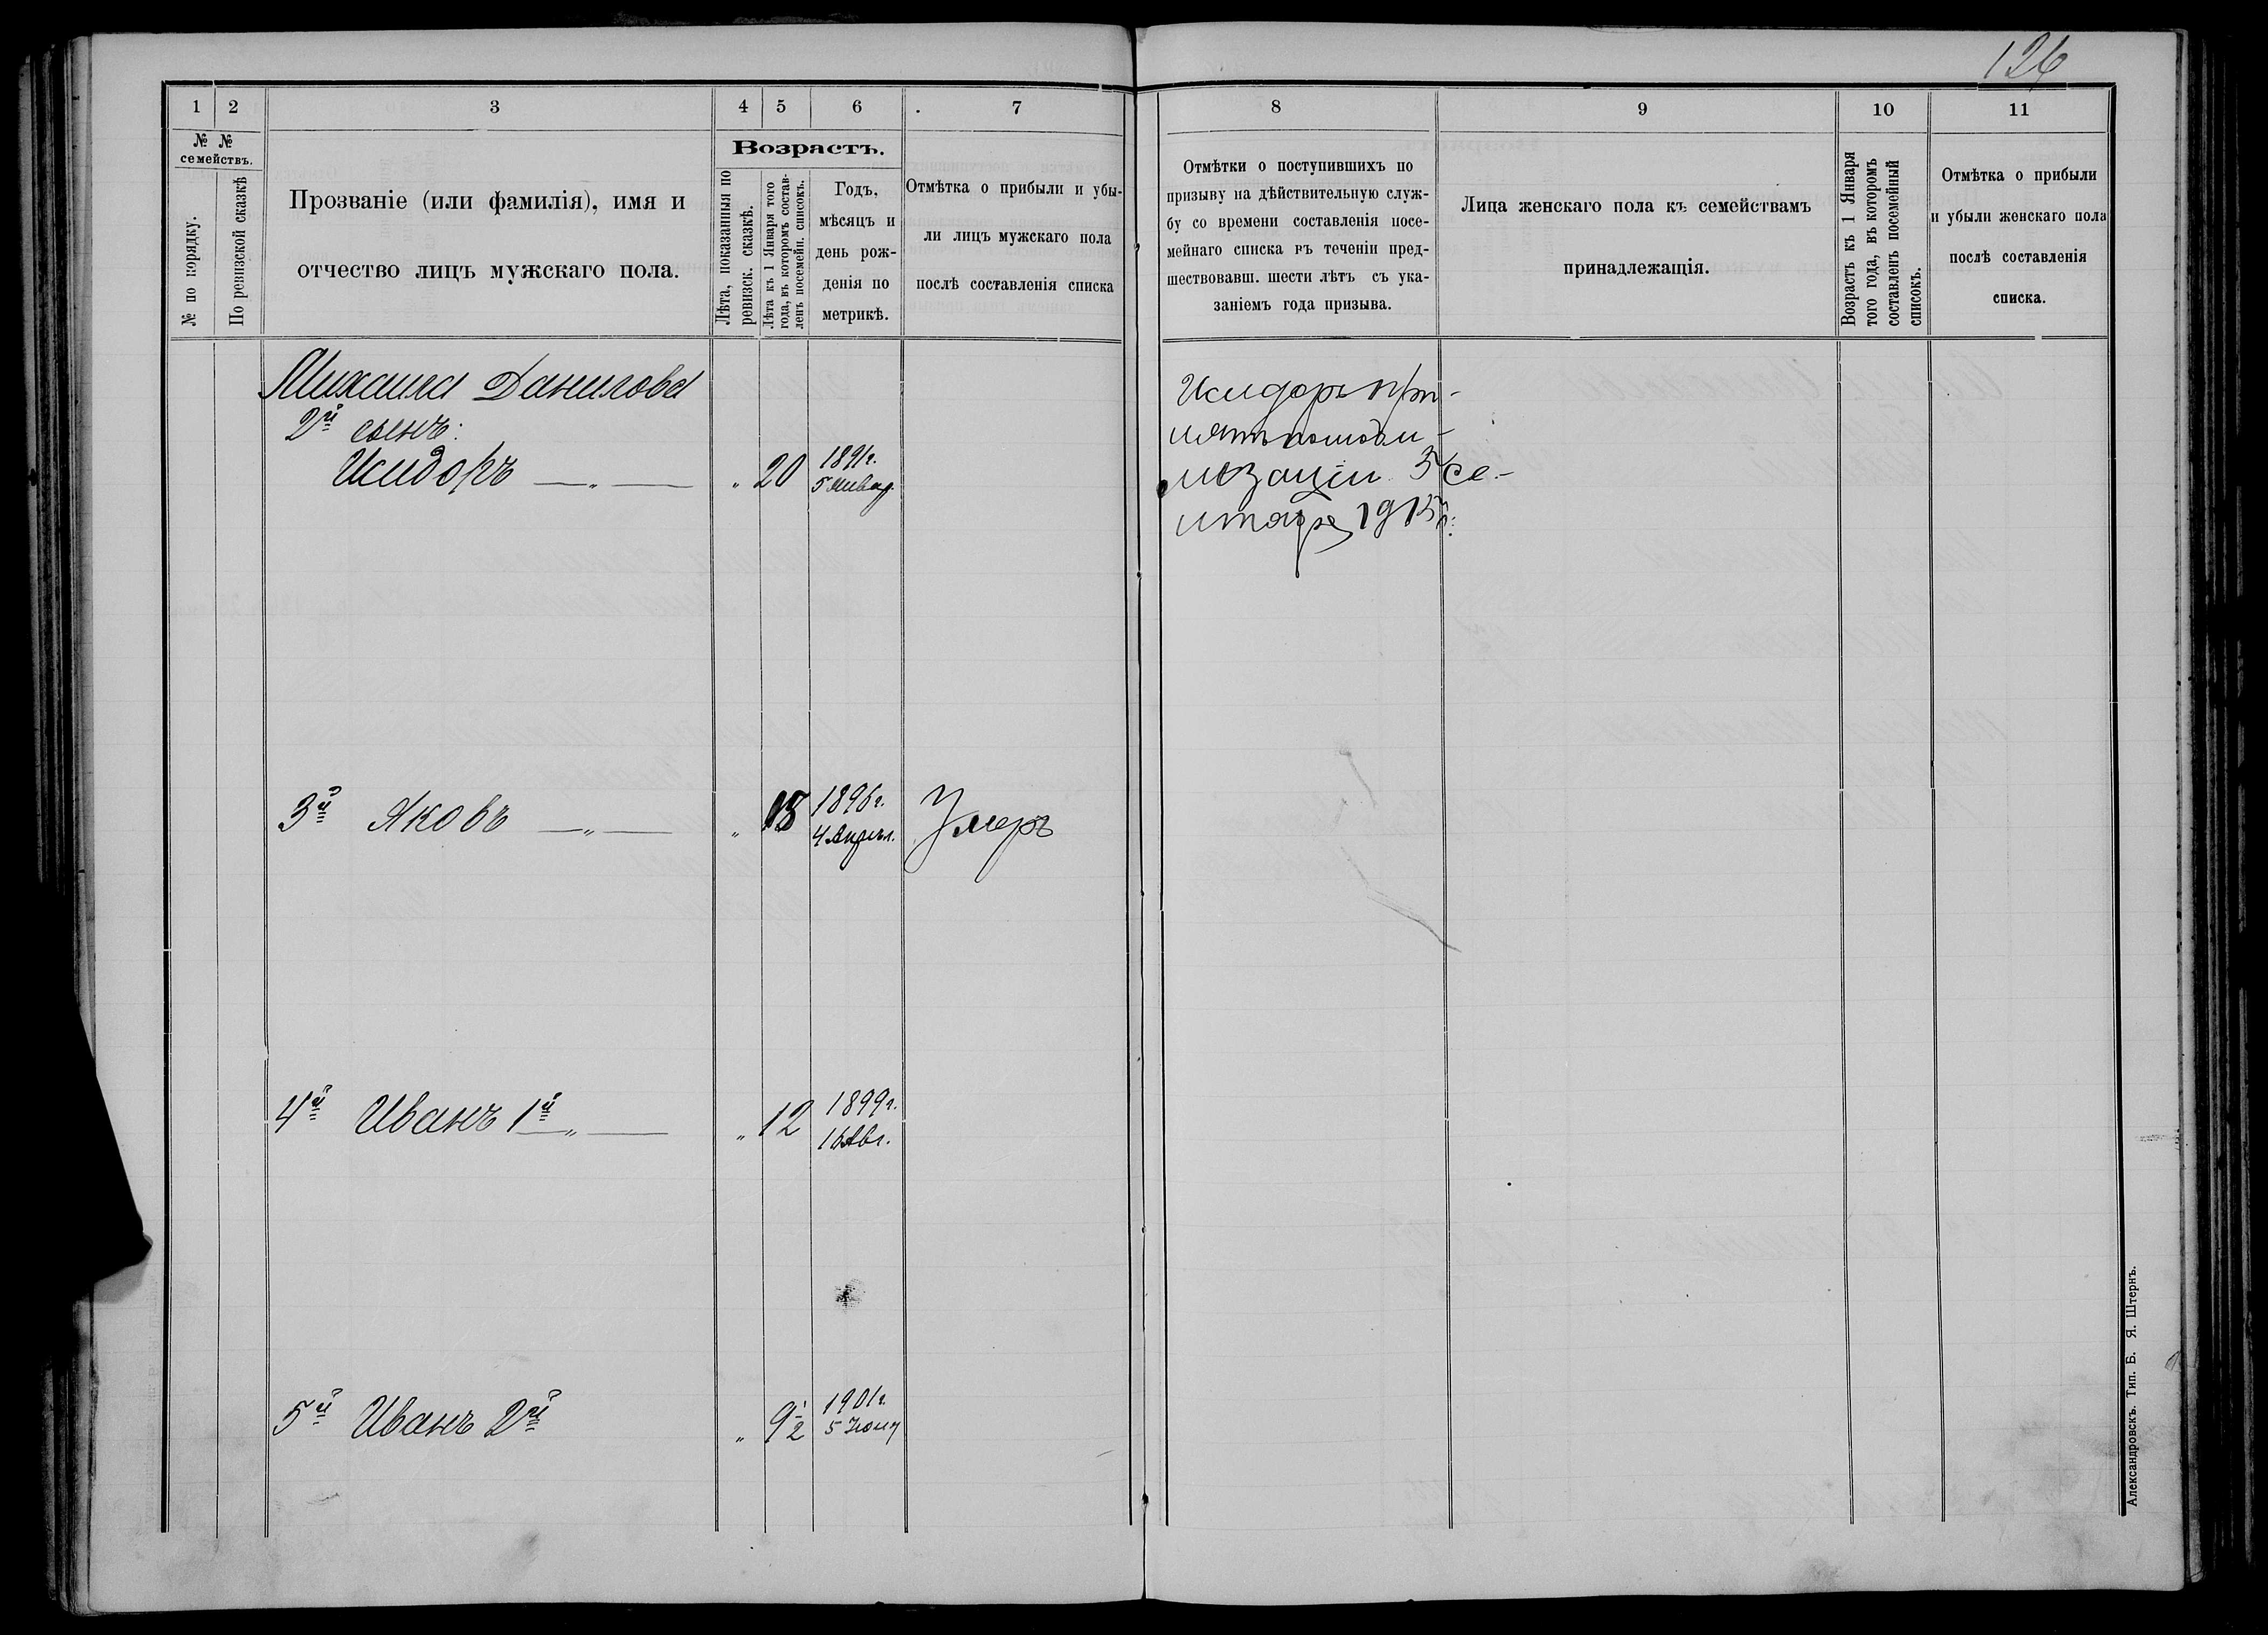 126
1 2 3 4 5 6 7 8 9 10 11
№ №
семействъ.
№ по порядку.
По ревизской сказкѣ
Прозваніе (или фамилія), имя и
отчество лицъ мужскаго пола.
Возрастъ.
Лѣта, показанныя по
ревизск. сказкѣ.
Лѣта къ 1 Января того
года, въ которомъ состав-
ленъ посемейн. списокъ.
Годъ,
мѣсяцъ и
день рож-
денія по
метрикѣ.
Отмѣтка о прибыли и убы-
ли лицъ мужскаго пола
послѣ составленія списка
Отмѣтки о поступившихъ по
призыву на дѣйствительную служ-
бу со времени составленія посе-
мейнаго списка въ теченіи пред-
шествовавш. шести лѣтъ съ ука-
заніемъ года призыва.
Лица женскаго пола къ семействамъ
принадлежащія.
Возрастъ къ 1 Января
того года, въ которомъ
составленъ посемейный
списокъ.
Отмѣтка о прибыли
и убыли женскаго пола
послѣ составленія
списка.
Михаила Данилова
2й сынъ:
Исидоръ — „ — „ 20 1891г.
5 Январ.
Исидоръ при-
нятъ по моби-
лизаціи 5 Се-
нтября 1915г.
3й Яковъ — „ — „ 18 1896г.
4 Апрѣл.
Умеръ
4й Иванъ 1й — „ — „ 12 1899г.
16 Авг.
5й Иванъ 2й „ 9½ 1901г.
5 Іюня
Александровскъ. Тип. Б. Я. Штернъ.